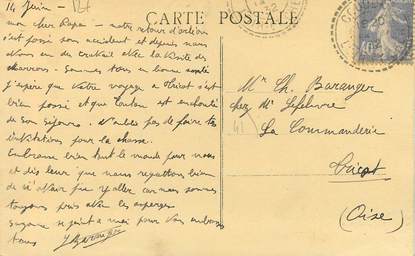 CARTE POSTALE
14 Juin
mon cher Papa - notre retour d'Orléans
s'est passé sans accident et depuis nous
avons eu du travail avec la visite des
charrons. Sommes tous en bonne santé
J'espère que Votre voyage a Tricot s'est
bien passé et que est enchanté
de son séjour. N'oubliez pas de faire les
invitations pour la chasse.
Embrasse bien tout le monde pour nous
et dis leur que nous regrettons bien
de n'avoir pu y aller car nous sommes
toujours pris avec les asperges
Suzanne se joint a moi pour Vous embrasser
tous
Mr Ch. Baranger
chez Mr Lefebvre
La Commanderie
Tricot
(Oise)